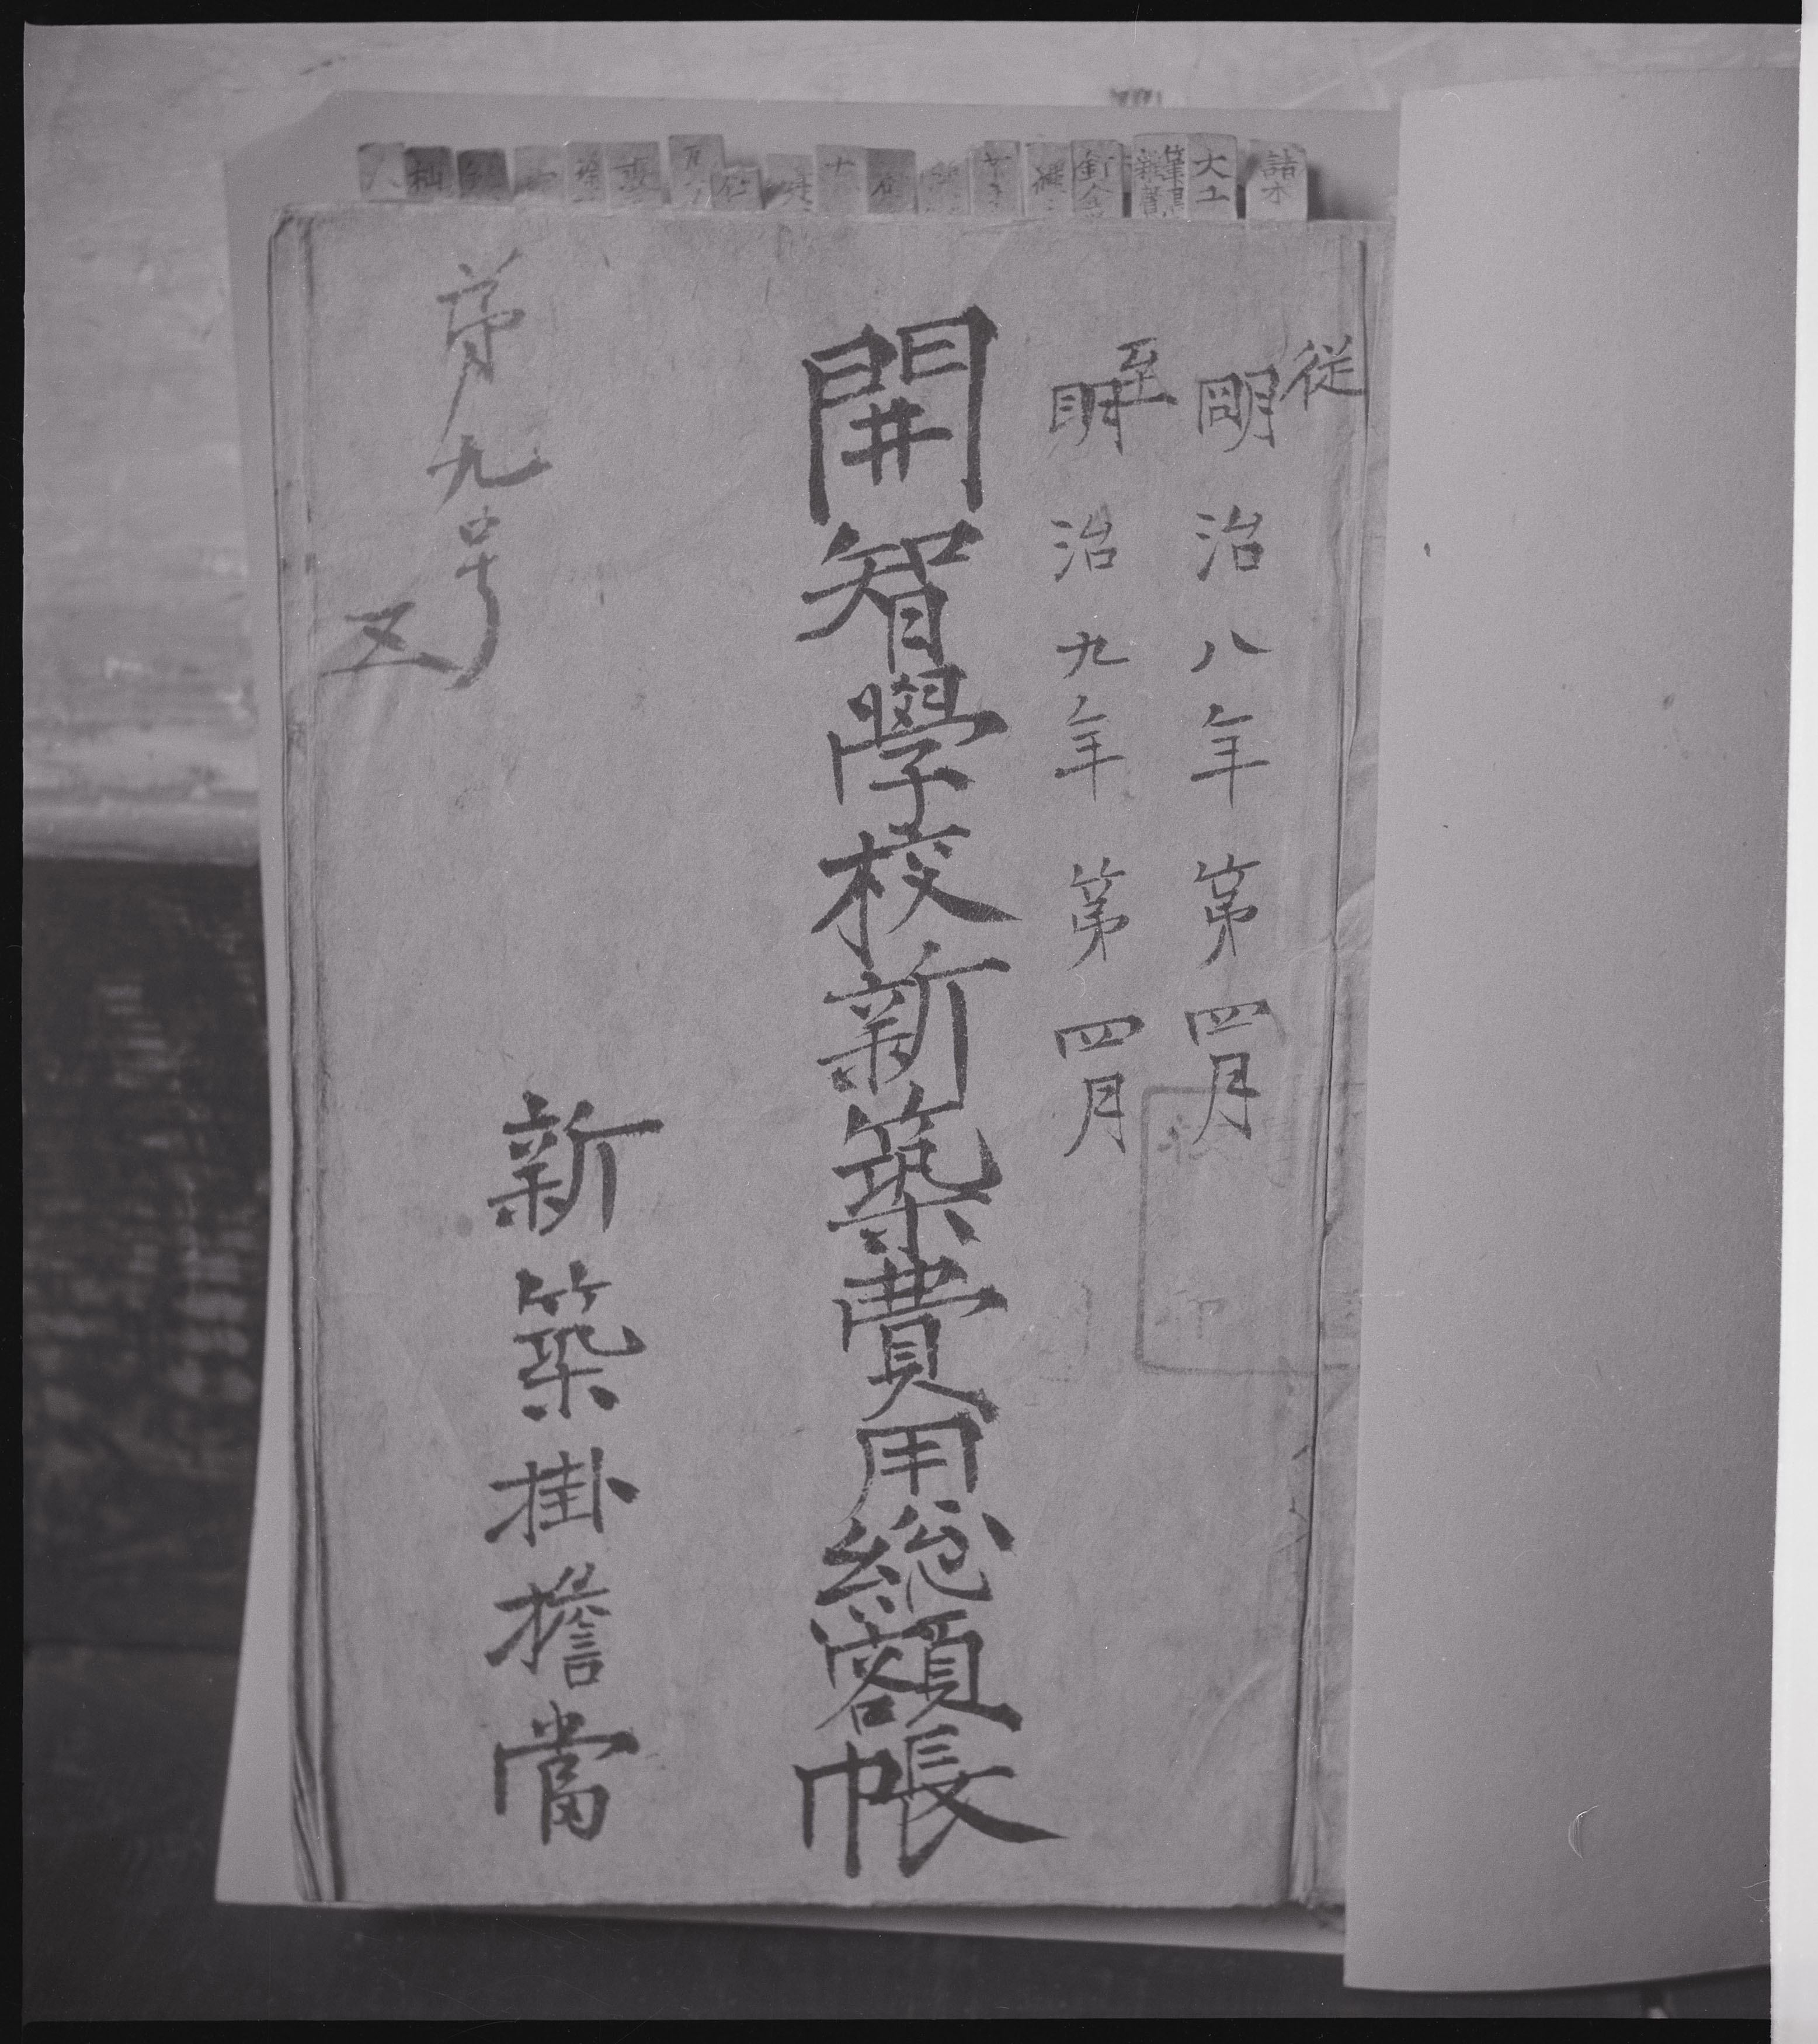 従
明治八年第四月
至
明治九年第四月
開智學校新築費用総額帳
新築掛擔當
第九号
又
詰木
大工
筆墨
雑費
釘金